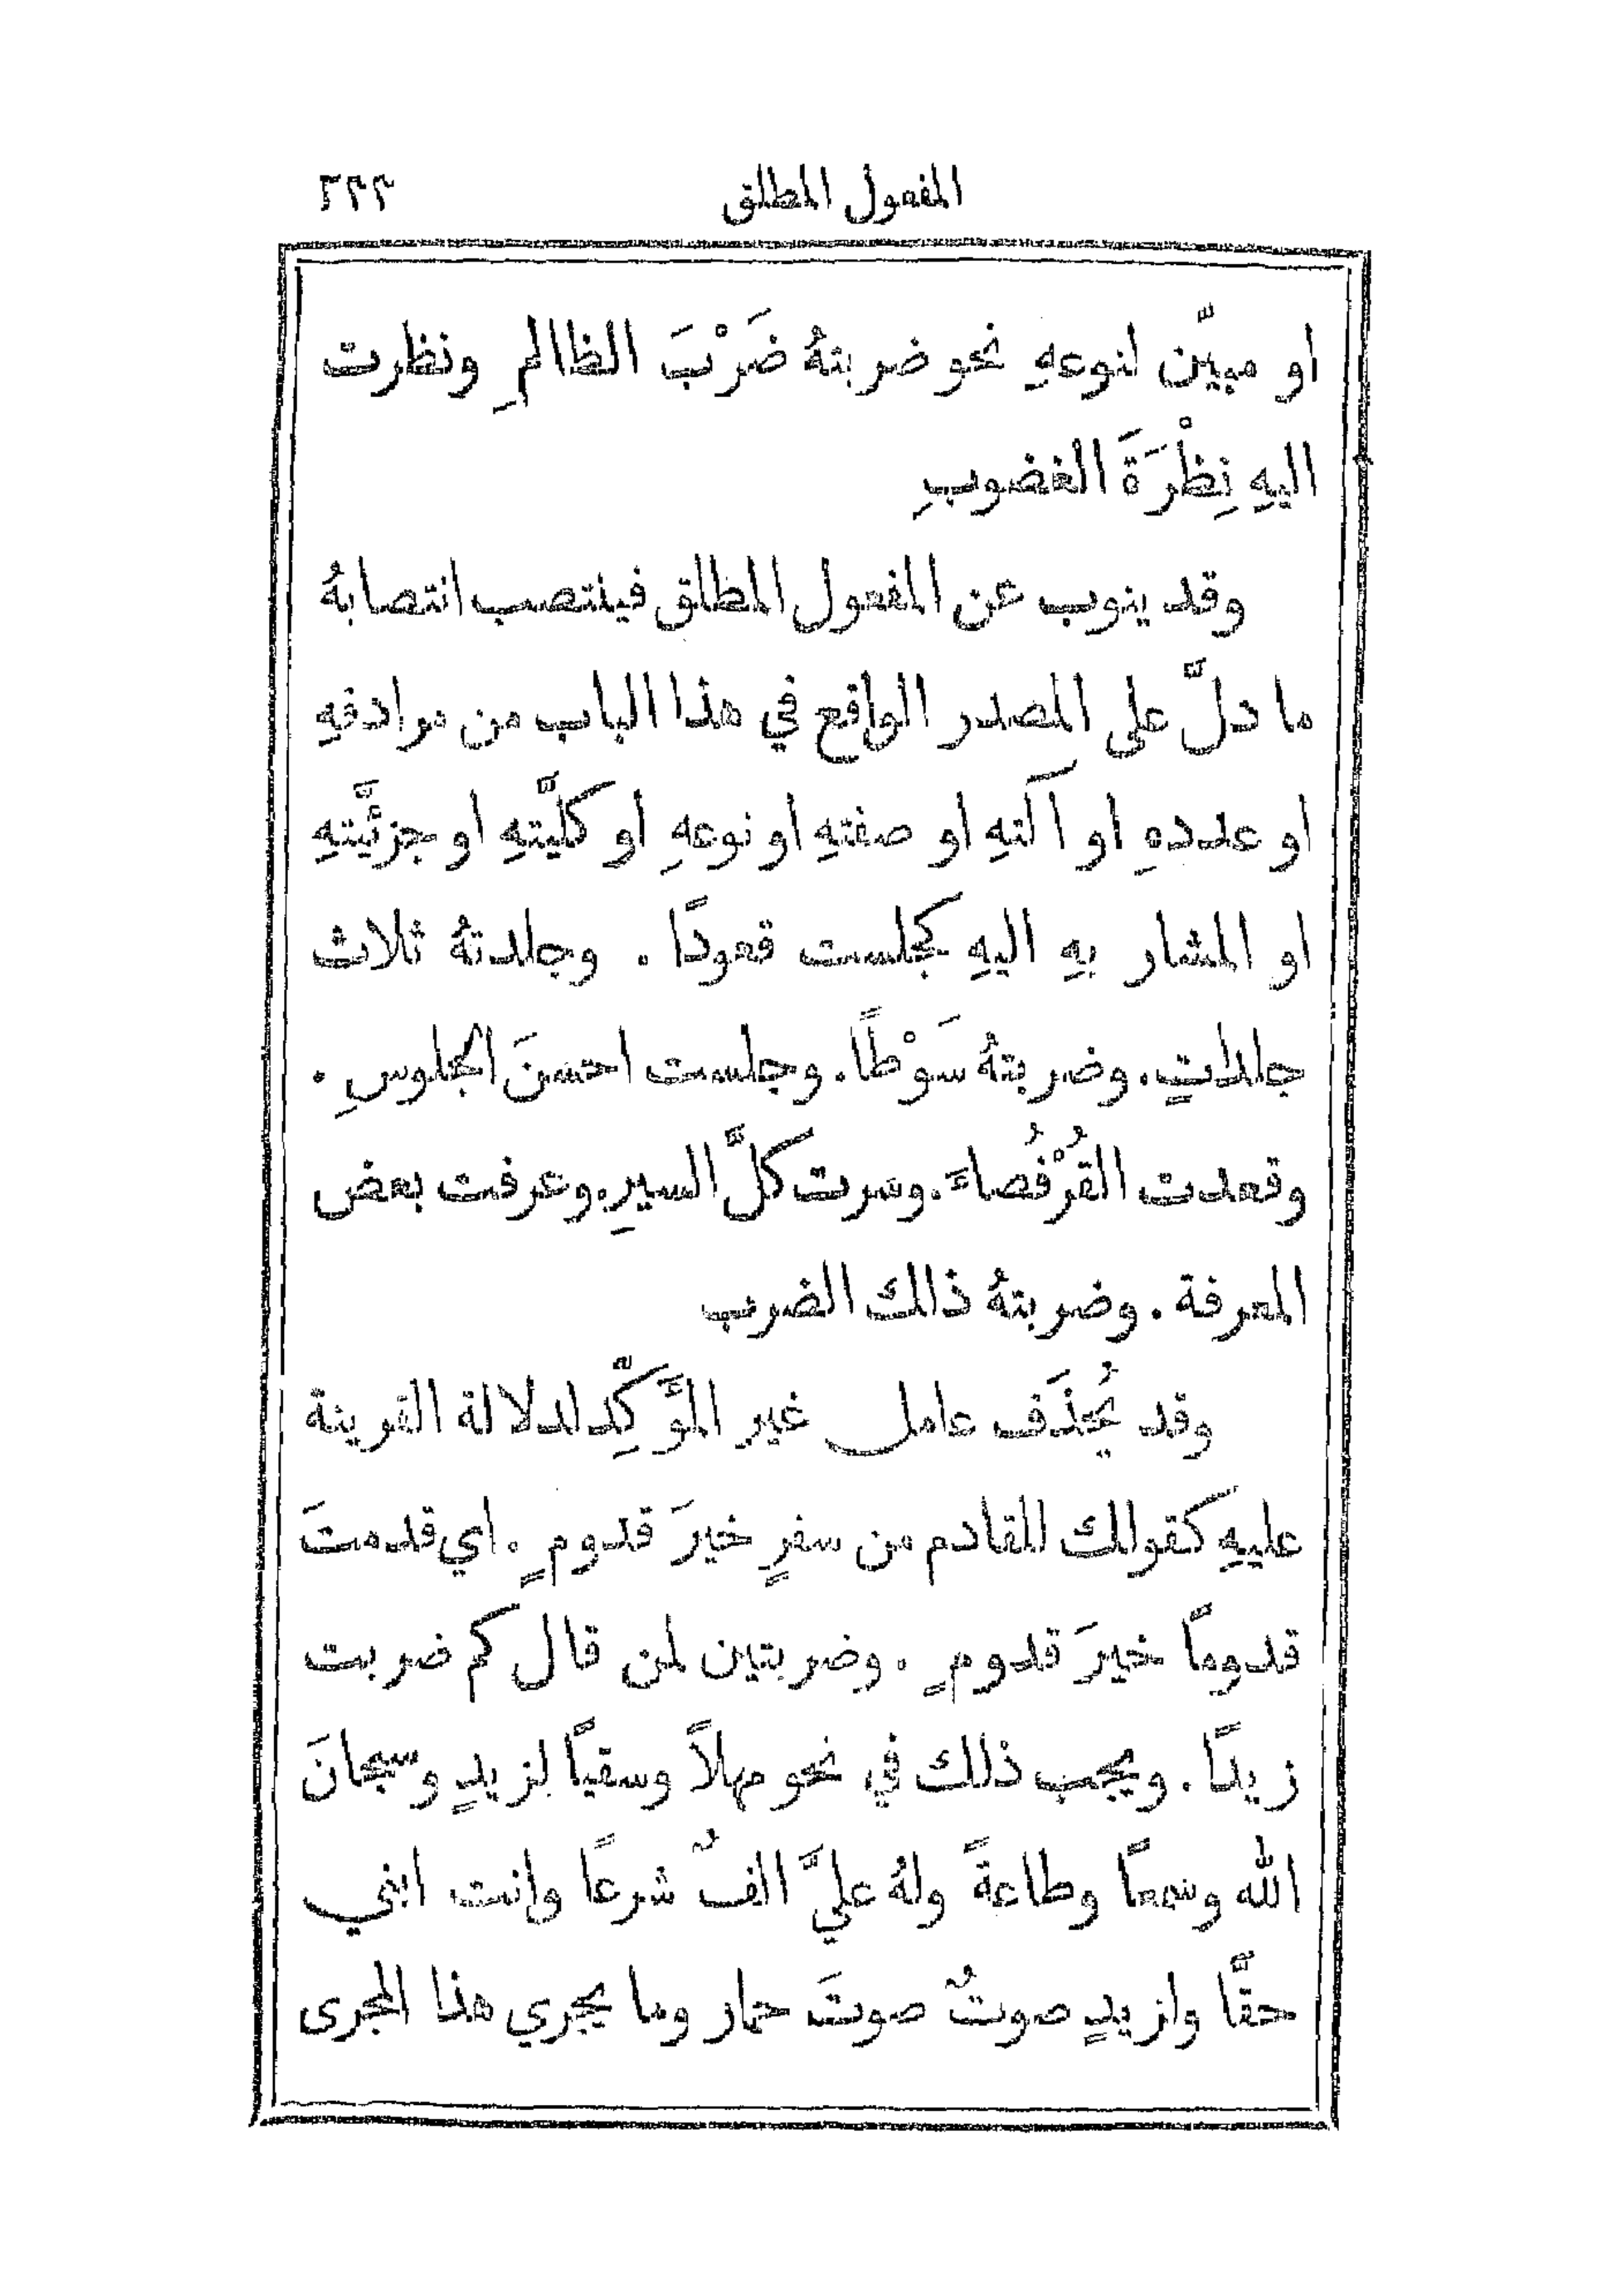 المفعول المطلق ٢٢٣
او مبيّن لنوعهِ نحو ضربتهُ ضَرْبَ الظالمِ ونظرت
اليهِ نِظْرَةَ الغضوبِ
وقد ينوب عن المفعول المطلق فينتصب انتصابهُ
ما دلَّ على المصدر الواقع في هذا الباب من مرادفهِ
او عددهِ او آلتهِ او صفتهِ او نوعهِ او كلّيَتهِ او جزئيَّتهِ
او المشار بهِ اليهِ كجلست قعودًا . وجلدتهُ ثلاث
جلداتٍ . وضربتهُ سَوْطًا . وجلست احسنَ الجلوسِ .
وقعدت القُرْفُصاءَ . وسرت كلَّ السيرِ . وعرفت بعض
المعرفة . وضربتهُ ذلك الضرب
وقد يُحذَف عامل غير المؤَكِّد لدلالة القرينة
عليهِ كقولك للقادم من سفرٍ خيرَ قدومٍ . اي قدمتَ
قدومًا خيرَ قدومٍ . وضربتين لمن قال كم ضربت
زيدًا . ويجب ذلك في نحو مهلاً وسقيًا لزيدٍ وسبحانَ
الله وسمعًا وطاعةً ولهُ عليَّ الفٌ شرعًا وانت ابني
حقًّا ولزيدٍ صوتٌ صوتَ حمار وما يجري هذا المجرى